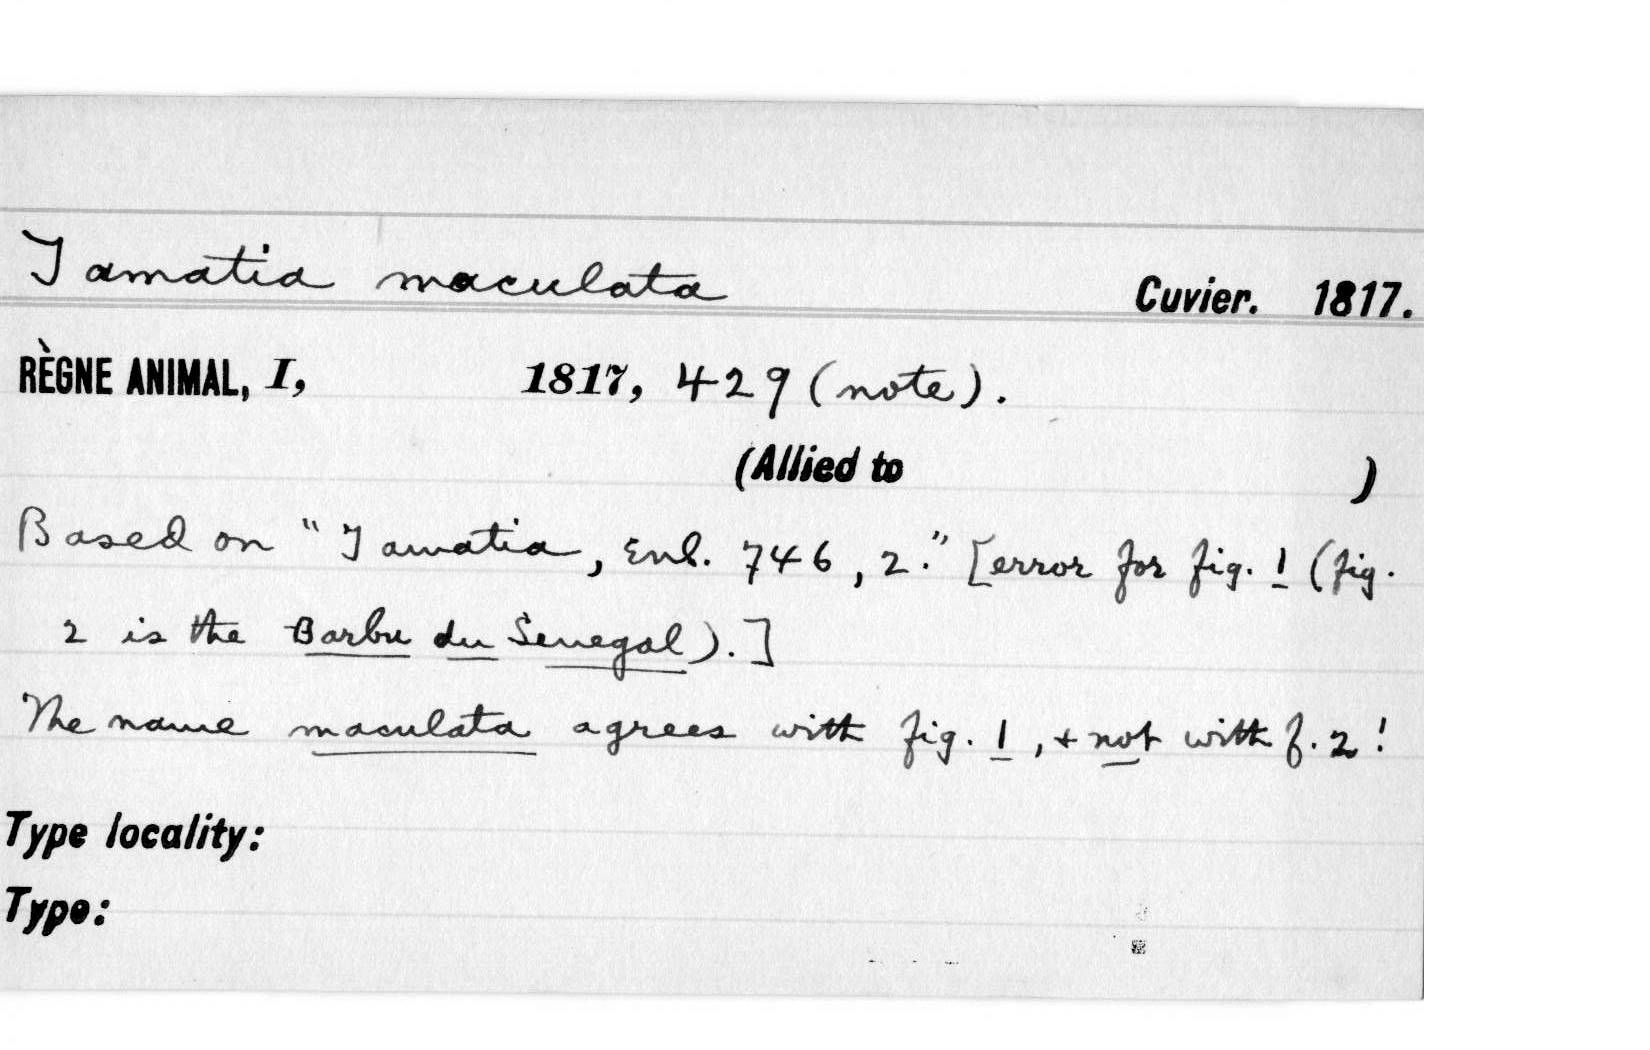 Tamatia maculata Cuvier. 1817.
RÈGNE ANIMAL, I, 1817, 429 (note).
(Allied to )
Based on "Tamatia, Enl. 746, 2." [error for fig. 1 (fig.
2 is the Barbu du Senegal).]
The name maculata agrees with fig. 1, + not with f. 2!
Type locality:
Type: